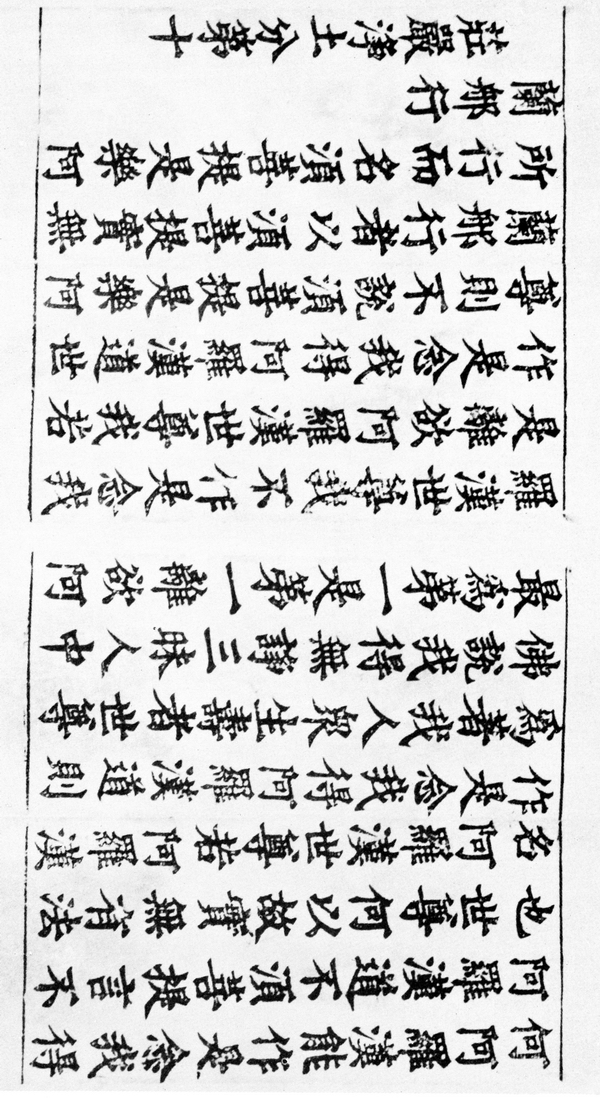 何阿羅漢能作是念我得
阿羅漢道不須菩提言不
也世尊何以故實無有法
名阿羅漢世尊若阿羅漢
作是念我得阿羅漢道則
爲著我人衆生壽者世尊
佛說我得無諍三昧人中
最爲第一是第一離欲阿
羅漢世尊我不作是念我
是離欲阿羅漢世尊我若
作是念我得阿羅漢道世
尊則不說須菩提是樂阿
蘭那行者以須菩提實無
所行而名須菩提是樂阿
蘭那行
莊嚴淨土分第十